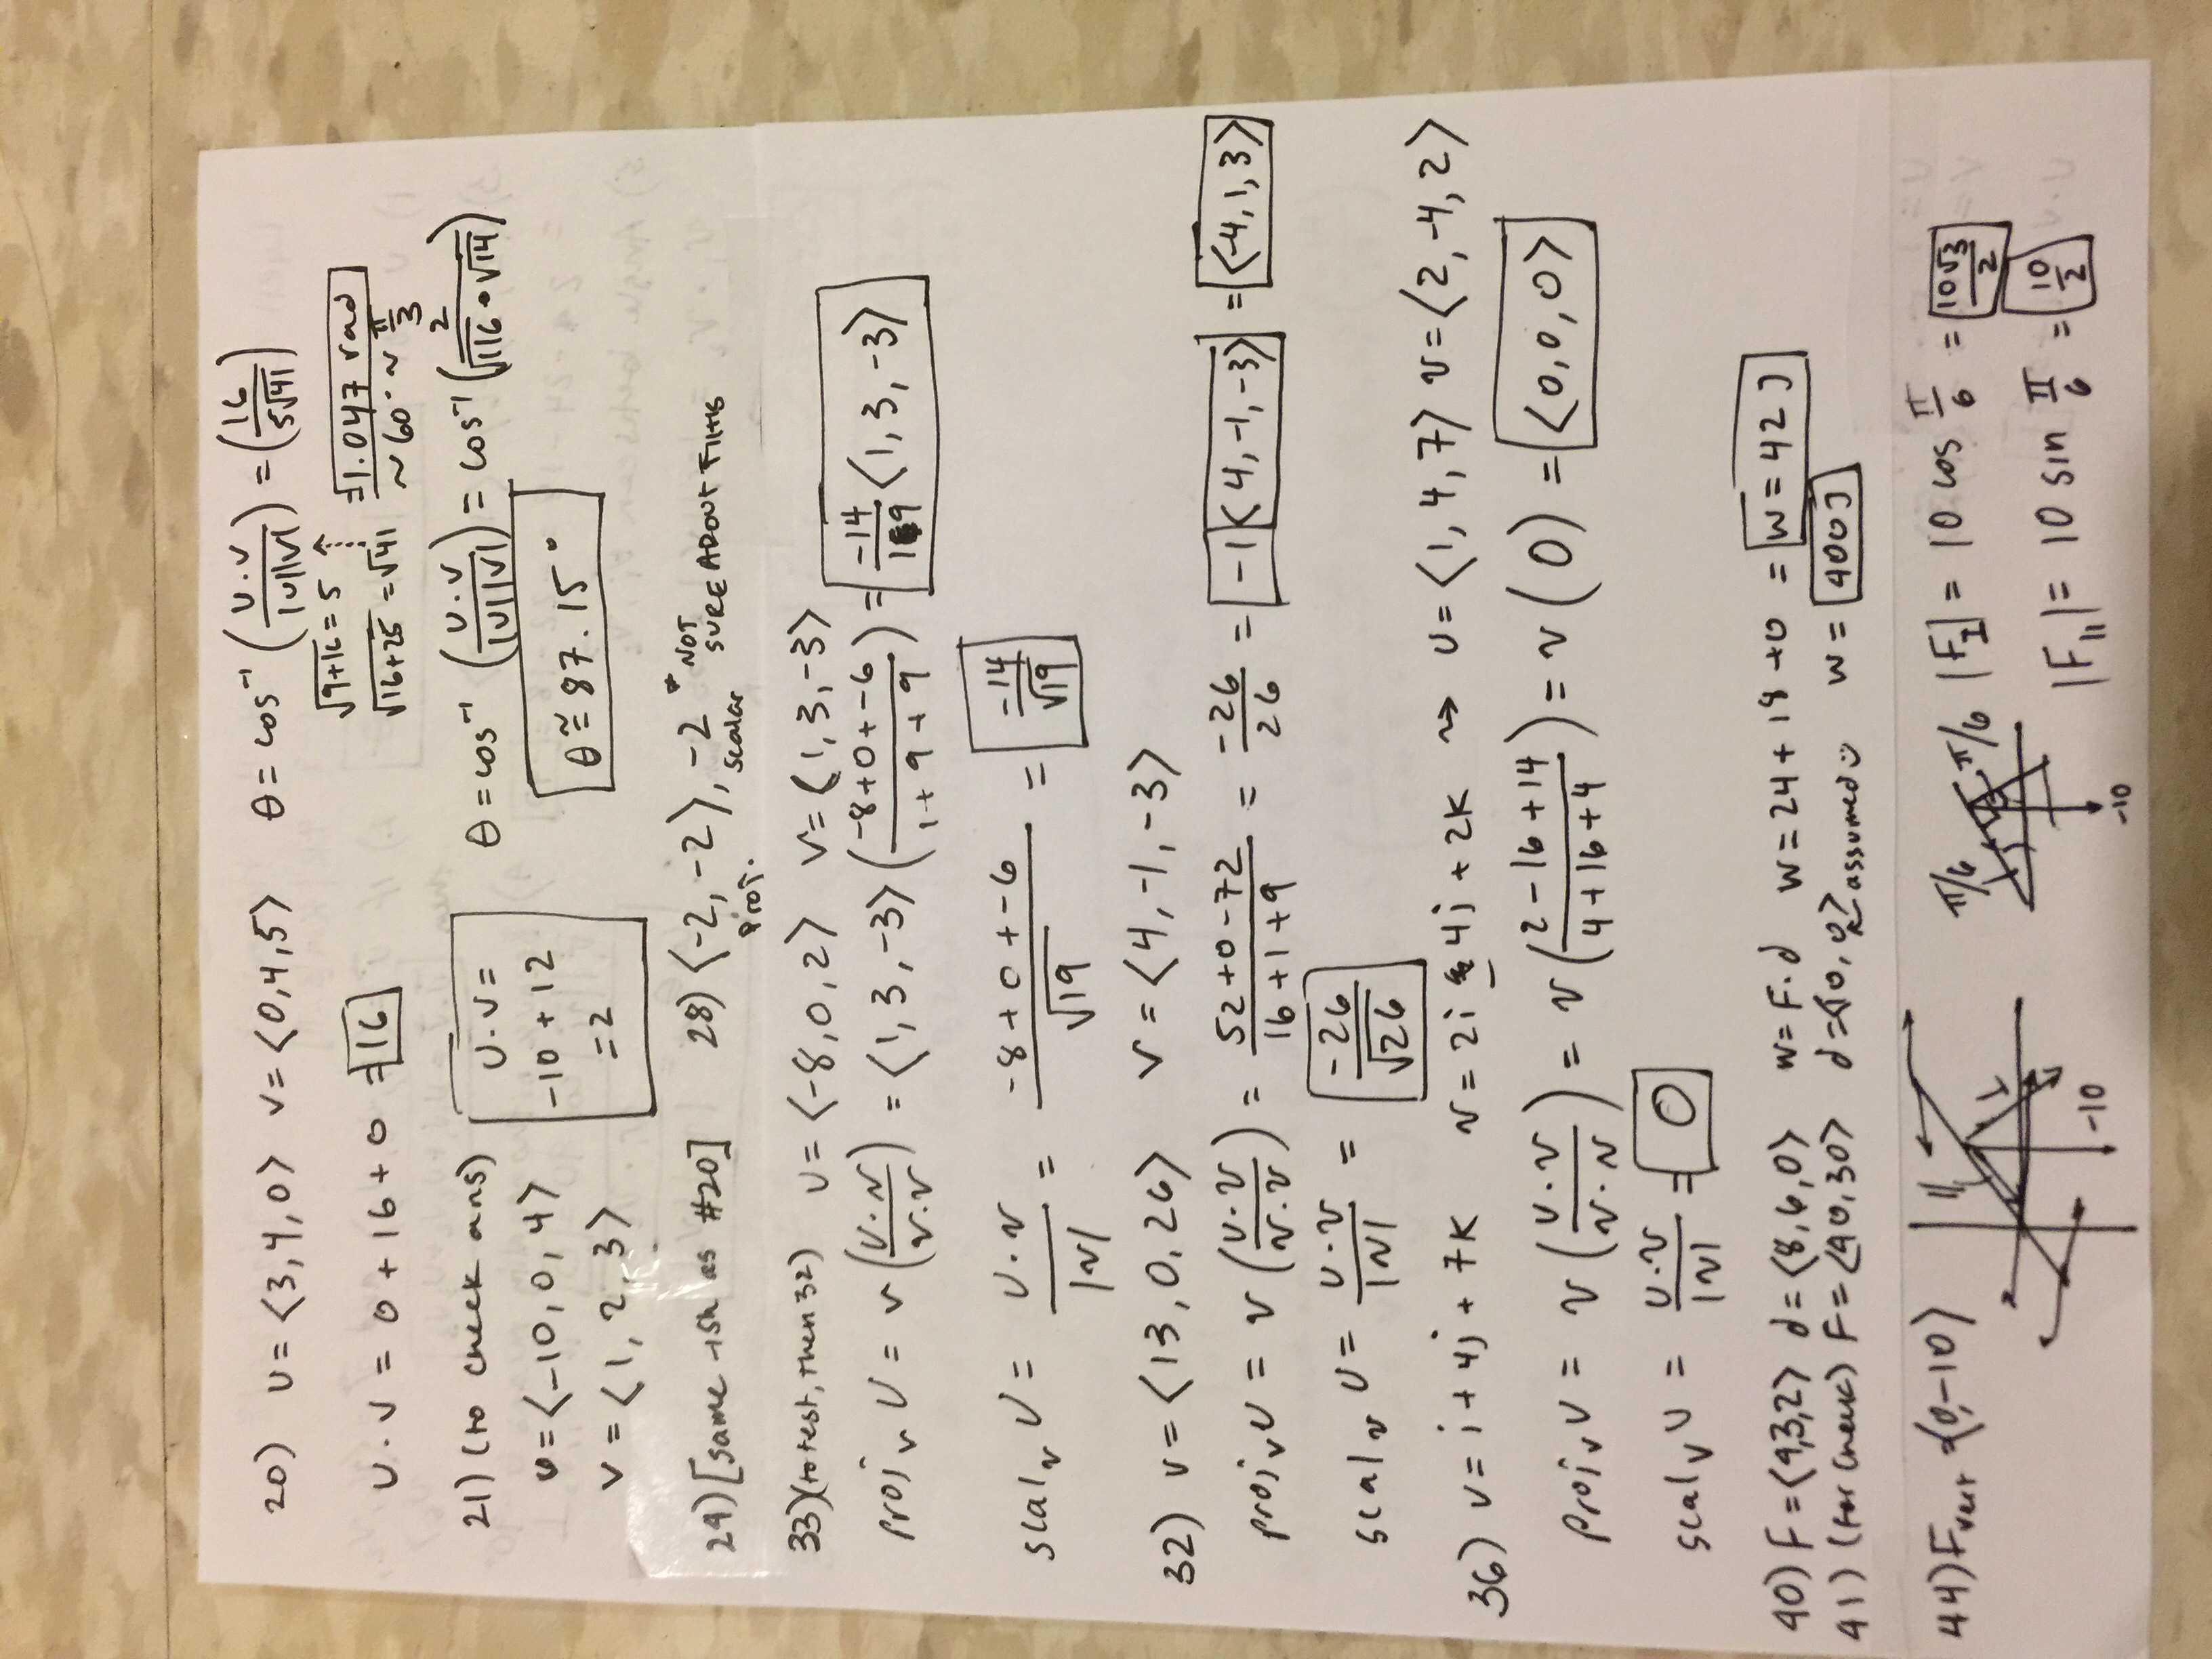 20) U = ⟨3,4,0⟩ V = ⟨0,4,5⟩ θ = cos⁻¹ (U·V / |U||V|) = (16 / 5√41)
√9+16 = 5
U·V = 0 + 16 + 0 = 16
√16+25 = √41
= 1.047 rad
~ 60° ~ π/3
21) (to check ans)
U = ⟨-10, 0, 4⟩
V = ⟨1, 2, 3⟩
U·V =
-10 + 12
= 2
θ = cos⁻¹ (U·V / |U||V|) = cos⁻¹ (2 / √116 • √14)
θ ≅ 87.15°
29) [same -ish as #20]
28) ⟨-2, -2⟩, -2 * NOT
SURE ABOUT
Proj. scalar
33) (to test, then 32) U = ⟨-8, 0, 2⟩ V = ⟨1, 3, -3⟩
proj_v U = v (U·v / v·v) = ⟨1, 3, -3⟩ (-8+0+-6 / 1+9+9) = -14/19 ⟨1, 3, -3⟩
scal_v U = U·v / |v| = -8+0+-6 / √19 = -14/√19
32) v = ⟨13, 0, 26⟩ v = ⟨4, -1, -3⟩
proj_v U = v (U·v / v·v) = 52+0-72 / 16+1+9 = -26/26 = -1⟨4, -1, -3⟩ = ⟨-4, 1, 3⟩
scal_v U = U·v / |v| = -26/√26
36) v = i + 4j + 7k v = 2i - 4j + 2k ⇝ U = ⟨1, 4, 7⟩ v = ⟨2, -4, 2⟩
proj_v U = v (U·v / v·v) = v (2-16+14 / 4+16+4) = v (0) = ⟨0,0,0⟩
scal_v U = U·v / |v| = 0
40) F = ⟨4,3,2⟩ d = ⟨8,6,0⟩ w = F·d w = 24 + 18 + 0 = w = 42 J
41) (for check) F = ⟨40, 30⟩ d = ⟨10, 0⟩ assumed w = 400 J
44) F vert = ⟨0, -10⟩
|| ⊥
-10
π/6 π/6
-10
|F⊥| = 10 cos π/6 = 10√3/2
|F||| = 10 sin π/6 = 10/2